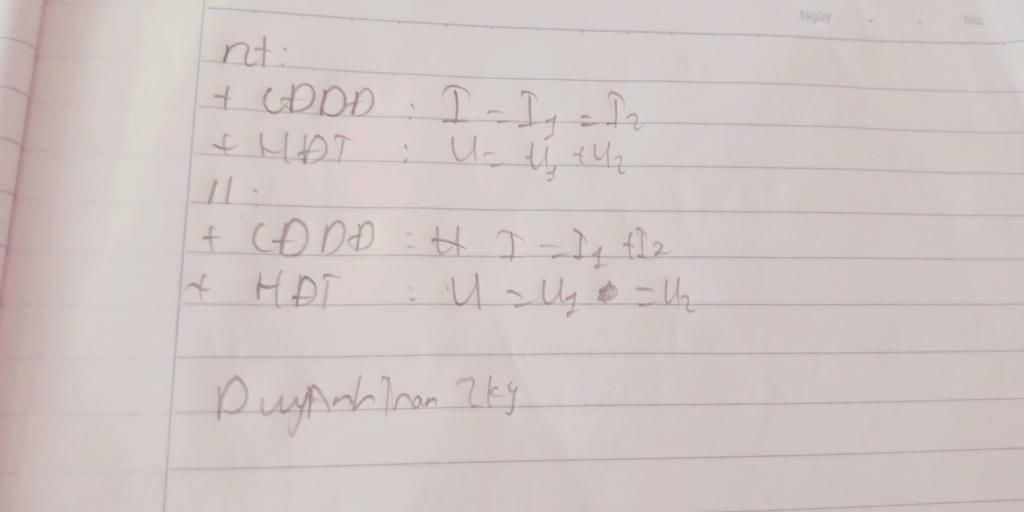 Ngày . . No.
nt:
+ CĐDĐ : I = I1 = I2
+ HĐT : U = U1 + U2
// :
+ CĐDĐ : I = I1 + I2
+ HĐT : U = U1 = U2
DuyAnhThan 2kg